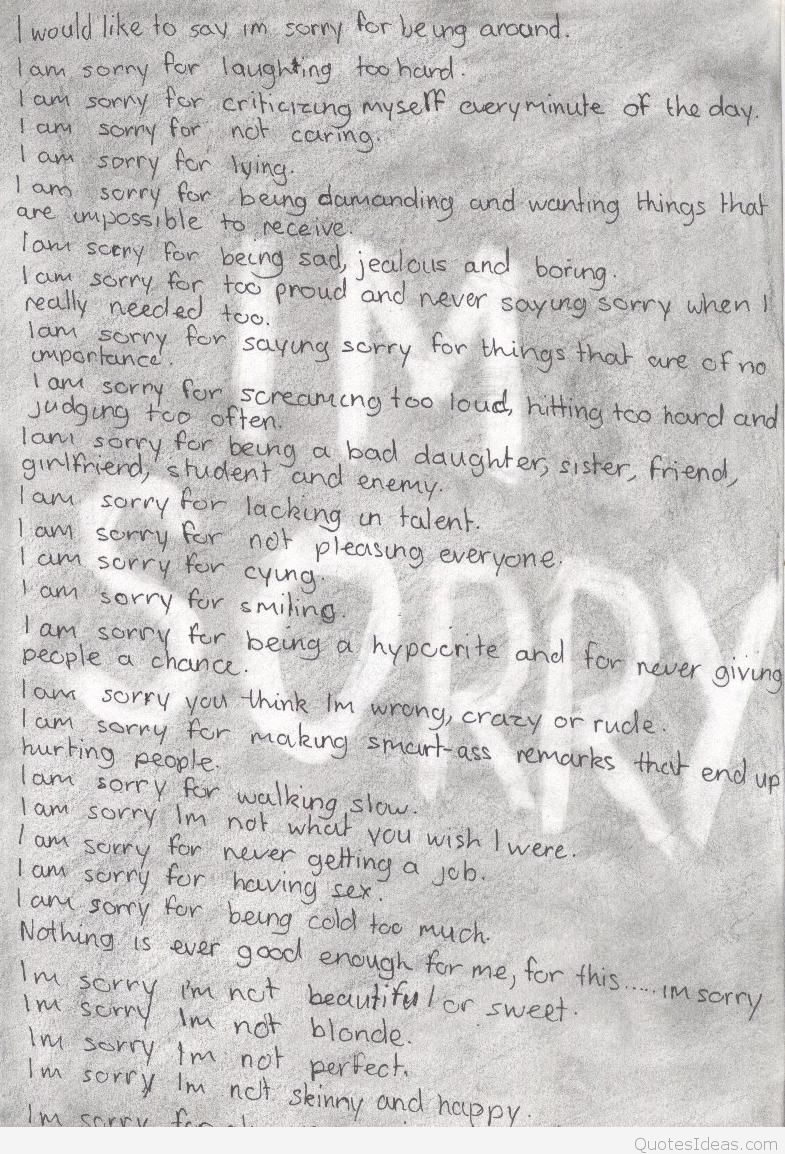 I would like to say im sorry for being around.
I am sorry for laughting too hard.
I am sorry for criticizing myself every minute of the day.
I am sorry for not caring.
I am sorry for lying.
I am sorry for being damanding and wanting things that
are impossible to receive.
I am sorry for being sad, jealous and boring.
I am sorry for too proud and never saying sorry when I
really needed too.
I am sorry for saying sorry for things that are of no
importance.
I am sorry for screaming too loud, hitting too hard and
judging too often.
I am sorry for being a bad daughter, sister, friend,
girlfriend, student and enemy.
I am sorry for lacking in talent.
I am sorry for not pleasing everyone.
I am sorry for cying.
I am sorry for smiling.
I am sorry for being a hypocrite and for never giving
people a chance.
I am sorry you think Im wrong, crazy or rude.
I am sorry for making smart-ass remarks that end up
hurting people.
I am sorry for walking slow.
I am sorry Im not what you wish I were.
I am sorry for never getting a job.
I am sorry for having sex.
I am sorry for being cold too much.
Nothing is ever good enough for me, for this..... im sorry
Im sorry i'm not beautiful or sweet.
Im sorry Im not blonde.
Im sorry Im not perfect.
Im sorry Im not skinny and happy.
Im sorry
I'M
SORRY
QuotesIdeas.com